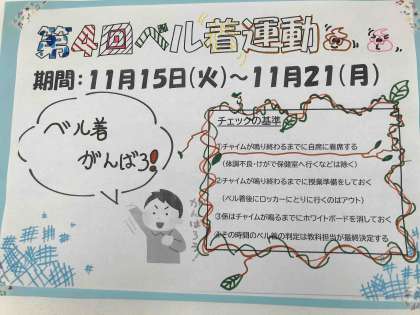 第4回ベル着運動
期間：11月15日(火)～11月21(月)
ベル着
がんばろ!
がんばろう!
チェックの基準
①チャイムが鳴り終わるまでに自席に着席する
(体調不良・けがで保健室へ行くなどは除く)
②チャイムが鳴り終わるまでに授業準備をしておく
(ベル着後にロッカーにとりに行くのはアウト)
③係はチャイムが鳴るまでにホワイトボードを消しておく
④その時間のベル着の判定は教科担当が最終決定する